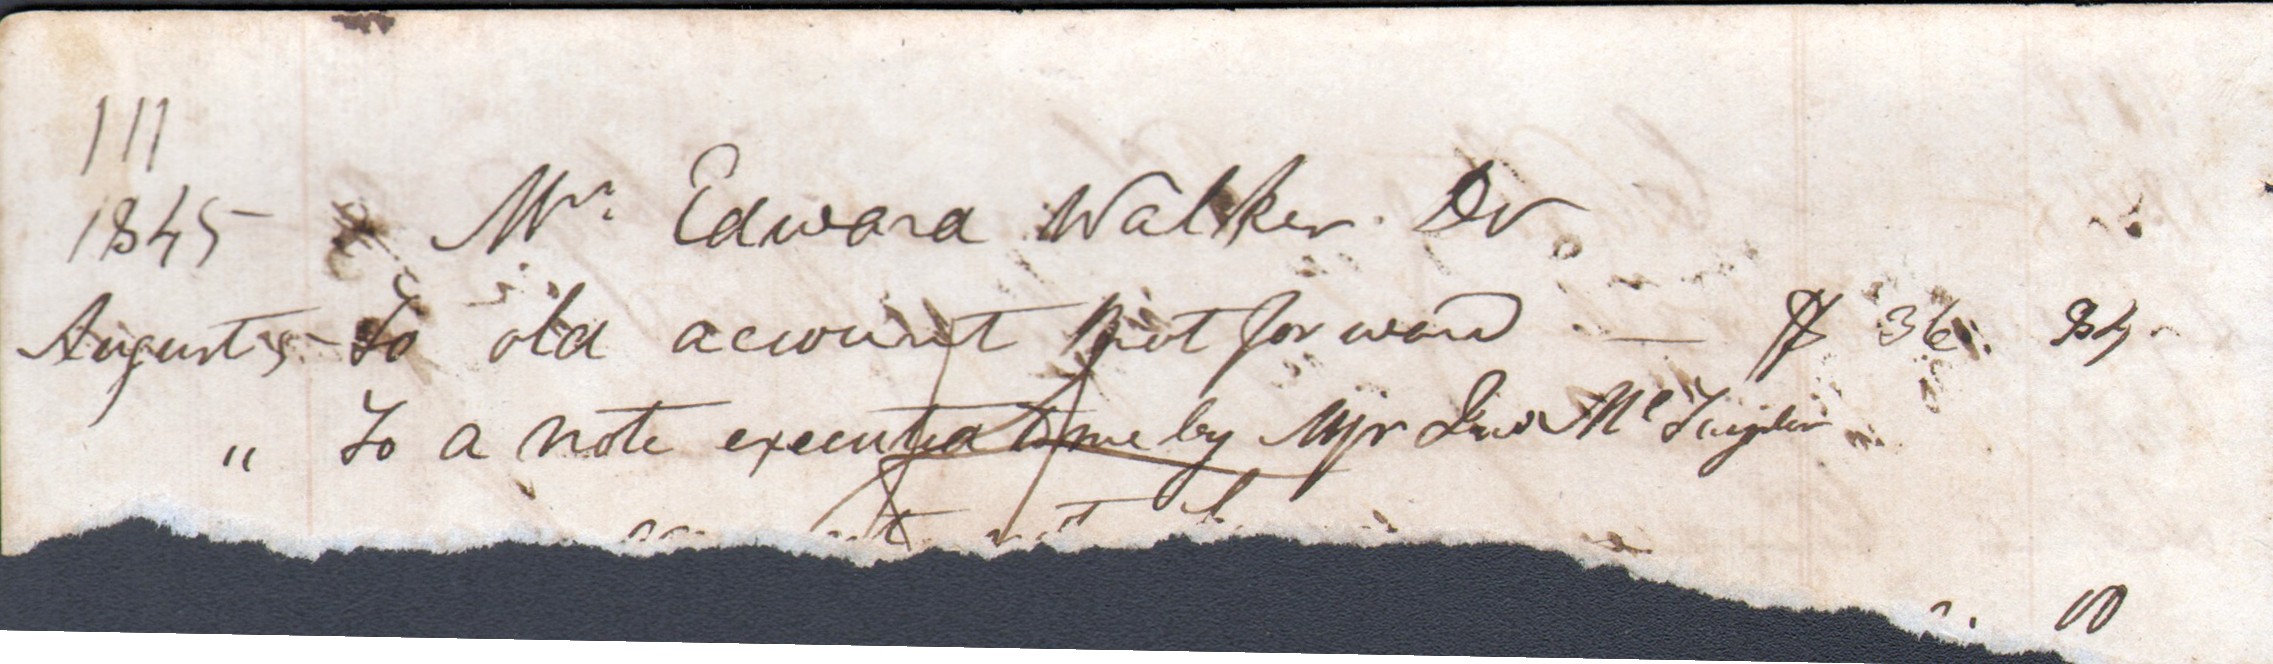 111
1845 Mr. Edward Walker. Dr
August 5 To old account put forward — $ 36. 84
" To a note executed to me by Mr Mc
00